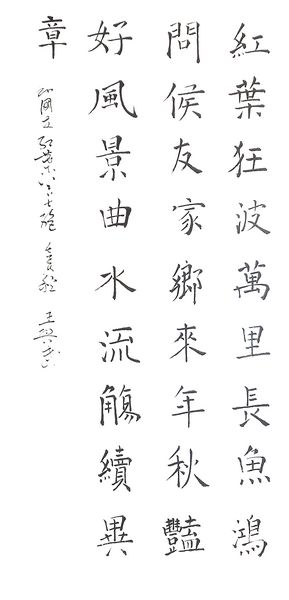 紅葉狂波萬里長魚鴻
問侯友家鄉來年秋豔
好風景曲水流觴續異
章